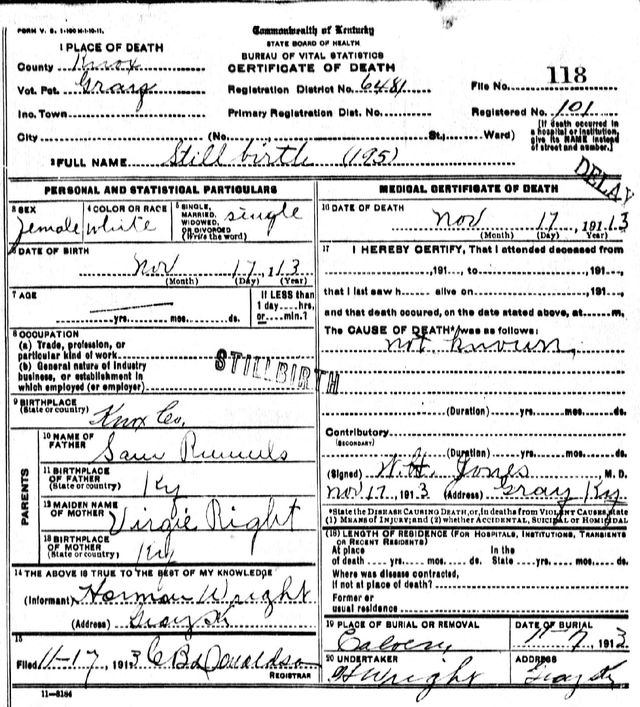 FORM V. S. 1-100 M-1-10-11.
Commonwealth of Kentucky
STATE BOARD OF HEALTH
BUREAU OF VITAL STATISTICS
CERTIFICATE OF DEATH
1 PLACE OF DEATH
County Knox
Vot. Pct. Gray
Inc. Town
City (No. St.; Ward)
Registration District No. 6481
Primary Registration Dist. No.
File No. 118
Registered No. 101
[If death occurred in a hospital or institution, give its NAME instead of street and number.]
2 FULL NAME Still birth (195)
DELAY
PERSONAL AND STATISTICAL PARTICULARS
3 SEX female
4 COLOR OR RACE white
5 SINGLE, MARRIED, WIDOWED, OR DIVORCED (Write the word) single
6 DATE OF BIRTH
Nov 17, 113
(Month) (Day) (Year)
7 AGE
yrs. mos. ds.
If LESS than 1 day hrs. or min.?
8 OCCUPATION
(a) Trade, profession, or particular kind of work
(b) General nature of industry business, or establishment in which employed (or employer)
STILLBIRTH
9 BIRTHPLACE
(State or country) Knox Co.
PARENTS
10 NAME OF FATHER Sam
11 BIRTHPLACE OF FATHER (State or country) Ky
12 MAIDEN NAME OF MOTHER Virgie Right
13 BIRTHPLACE OF MOTHER (State or country) Ky
14 THE ABOVE IS TRUE TO THE BEST OF MY KNOWLEDGE
(Informant) Herman Wright
(Address) Gray Ky
15
Filed 11-17 1913 C B Donaldson
REGISTRAR
11-8184
MEDICAL CERTIFICATE OF DEATH
16 DATE OF DEATH
Nov 17, 1913
(Month) (Day) (Year)
17 I HEREBY CERTIFY, That I attended deceased from
,191 to ,191 ,
that I last saw h alive on ,191 ,
and that death occured, on the date stated above, at m.
The CAUSE OF DEATH* was as follows:
not known,
(Duration) yrs. mos. ds.
Contributory
(SECONDARY)
(Duration) yrs. mos. ds.
(Signed) W.H. Jones M. D.
Nov 17, 1913 (Address) Gray Ky.
*State the DISEASE CAUSING DEATH, or, in deaths from VIOLENT CAUSES, state (1) MEANS OF INJURY; and (2) whether ACCIDENTAL, SUICIDAL or HOMICIDAL
(18) LENGTH OF RESIDENCE (FOR HOSPITALS, INSTITUTIONS, TRANSIENTS OR RECENT RESIDENTS)
At place of death yrs. mos. ds. In the State yrs. mos. ds.
Where was disease contracted, if not at place of death?
Former or usual residence
19 PLACE OF BURIAL OR REMOVAL
DATE OF BURIAL
11-7 1913
20 UNDERTAKER
Wright
ADDRESS
Gray Ky